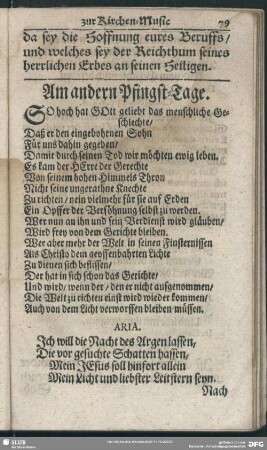 zur Kirchen-Music 79
da sey die Hoffnung eures Beruffs/
und welches sey der Reichthum seines
herrlichen Erbes an seinen Heiligen.
Am andern Pfingst-Tage.
SO hoch hat GOtt geliebt das menschliche Ge-
schlechte/
Daß er den eingebohrnen Sohn
Für uns dahin gegeben/
Damit durch seinen Tod wir möchten ewig leben.
Es kam der HErre der Gerechte
Von seinem hohen Himmels Thron
Nicht seine ungerathne Knechte
Zu richten/ nein vielmehr für sie auf Erden
Ein Opffer der Versöhnung selbst zu werden.
Wer nun an ihn und sein Verdienst wird gläuben/
Wird frey von dem Gerichte bleiben.
Wer aber mehr der Welt in seinen Finsternissen
Als Christo dem geoffenbahrten Lichte
Zu dienen sich beflissen/
Der hat in sich schon das Gerichte/
Und wird/ wenn der/ den er nicht aufgenommen/
Die Welt zu richten einst wird wieder kommen/
Auch von dem Licht verworffen bleiben müssen.
ARIA.
Ich will die Nacht des Argen lassen,
Die vor gesuchte Schatten hassen,
Mein JEsus soll hinfort allein
Mein Licht und liebster Leitstern seyn.
Nach
SLUB
DFG